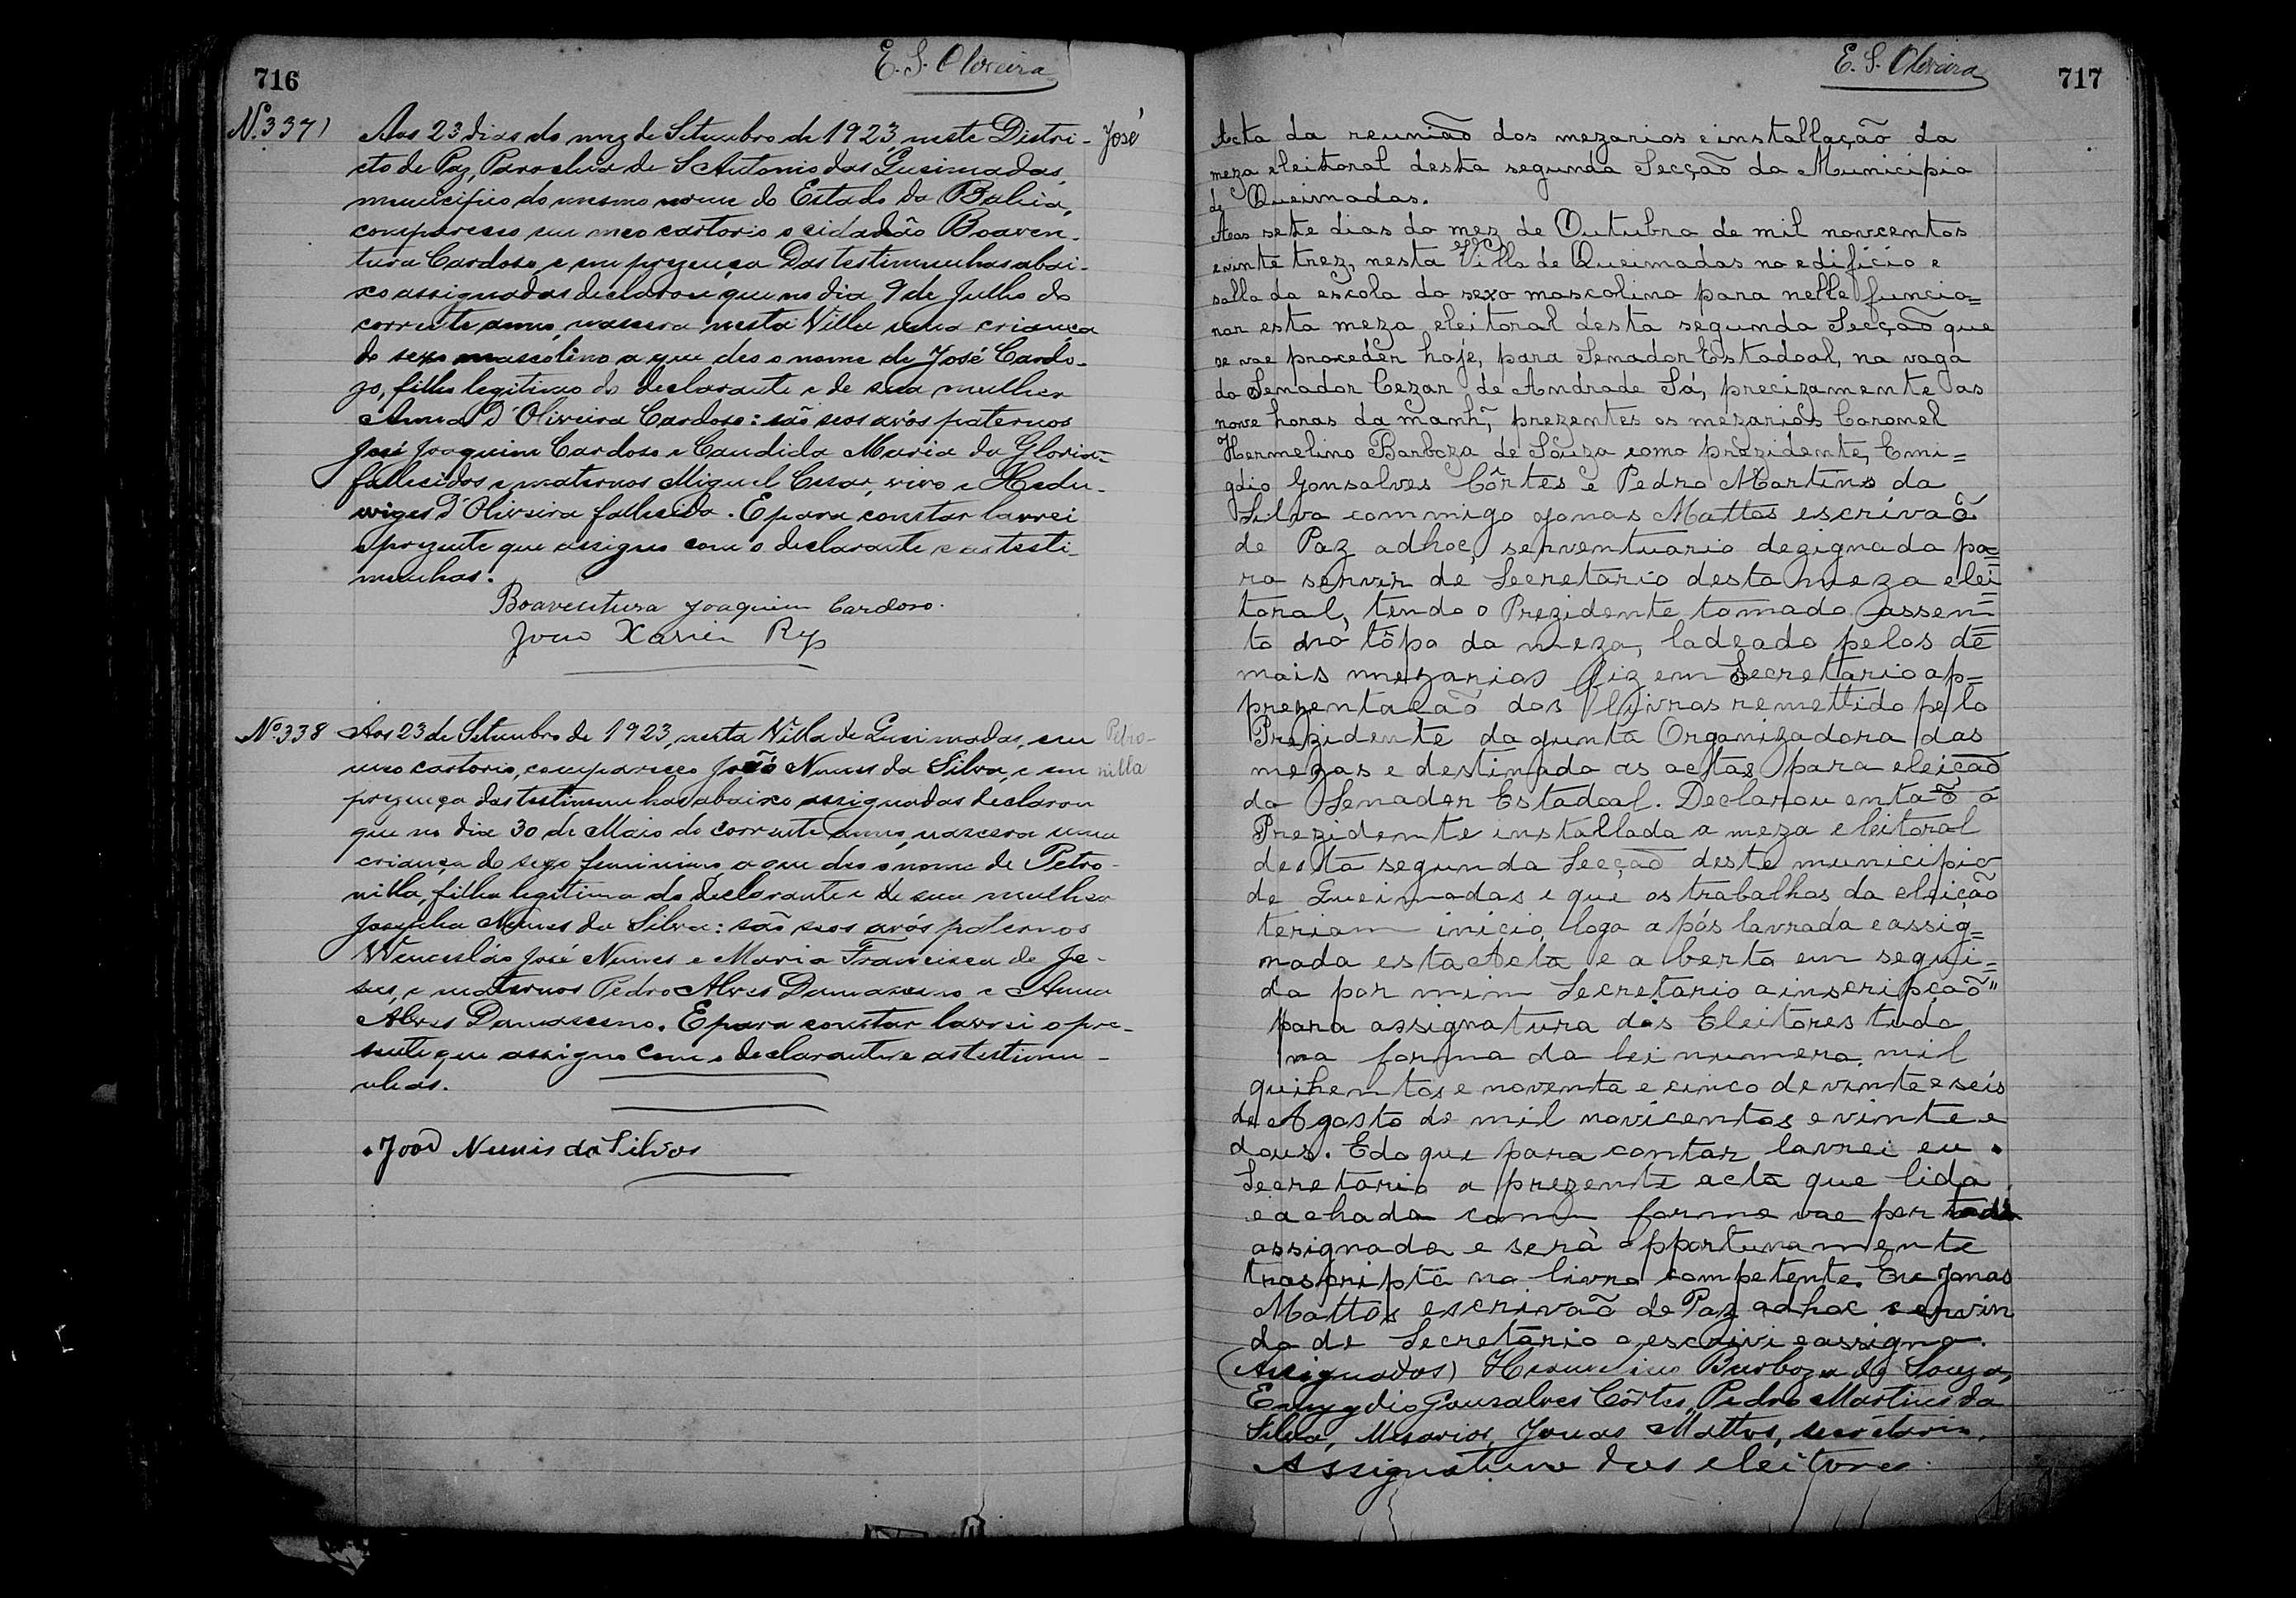 716
E. S. Oliveira
N. 337
José
Aos 23 dias do mez de Setembro de 1923, neste Distri-
cto de Paz, Parochia de S Antonio das Queimadas,
municipio do mesmo nome do Estado da Bahia,
compareceo em meo cartorio o cidadão Boaven-
tura Cardoso, e em prezença das testimunhas abai-
xo assignadas declarou que no dia 9 de Julho do
corrente anno, nascera nesta Villa uma criança
do sexo mascolino a que deo o nome de José Cardo-
zo, filho legitimo do declarante e de sua mulher
Anna D'Oliveira Cardoso: são seos avós paternos
José Joaquim Cardoso e Candida Maria da Gloria-
fallecidos e maternos Miguel Cesar, vivo e Hedu-
wiges D'Oliveira fallecida. E para constar lavrei
o prezente que assigno com o declarante e as testi-
munhas.
Boaventura Joaquim Cardoso.
João Xavier
Nº 338
Petro-
nilla
Aos 23 de Setembro de 1923, nesta Villa de Queimadas, em
meo cartorio, compareceo João Nunes da Silva, e em
prezença das testimunhas abaixo assignadas declarou
que no dia 30 de Maio do corrente anno, nascera uma
criança do sexo feminino, a que deo o nome de Petro-
nilla, filha legitima do declarante e de sua mulher
Josepha Nunes da Silva: são seos avós paternos
Wenceslão José Nunes e Maria Francisca de Je-
sus, e maternos Pedro Alves Damasceno e Anna
Alves Damasceno. E para constar lavrei o pre-
sente que assigno com o declarante e as testimu-
nhas.
João Nunis da Silva
E. S. Oliveira
717
Acta da reunião dos mezarios e installação da
meza eleitoral desta segunda Secção do Municipio
de Queimadas.
Aos sete dias do mez de Outubro de mil novecentos
e vinte trez, nesta Villa de Queimadas no edificio e
salla da escola do sexo mascolino para nelle funcio=
nar esta meza eleitoral desta segunda Secção que
se vae proceder hoje, para Senador Estadoal, na vaga
do Senador Cezar de Andrade Sá, precizamente as
nove horas da manhã, prezentes os mezarios Coronel
Hermelino Barboza de Souza como prezidente, Emi=
gdio Gonsalves Côrtes e Pedro Martins da
Silva commigo Jonas Mattos escrivaõ
de Paz adhoc, serventuario dezignado pa=
ra servir de Secretario desta meza elei=
toral, tendo o Prezidente tomado assen=
to no tôpo da meza, ladeado pelos de
mais mezarios fiz em Secretario ap=
prezentacaõ dos livros remettido pelo
Prezidente da junta Organizadora das
mezas e destinado as actas para eleiçaõ
do Senador Estadoal. Declarou entaõ o
Prezidente installada a meza eleitoral
desta segunda Secção deste municipio
de Queimadas e que os trabalhos da eleição
teriam inicio logo a pós lavrada e assig=
nada esta Acta e a berta em segui=
da por mim Secretario a inscripçaõ"
para assignatura dos Eleitores tudo
na forma da lei numero mil
quihentos e noventa e cinco de vinte e seis
de Agosto de mil novicentos e vinte e
dous. E do que para contar lavrei eu
Secretario a prezente acta que lida
e achada com forme vae por todos
assignada e será opportunamente
trascripta no livro competente. Eu Jonas
Mattos escrivaõ de Paz adhoc servin
do de Secretario o escrivi e assigno.
(Assignados) Hermelino Barboza de Souza,
Emygdio Gonsalves Côrtes, Pedro Martins da
Silva, Mesarios, Jonas Mattos, secretario.
Assignatura dos eleitores.